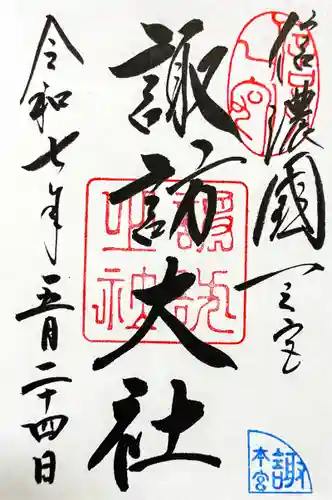 信濃國一之宮
諏訪大社
令和七年五月二十四日
諏
本宮